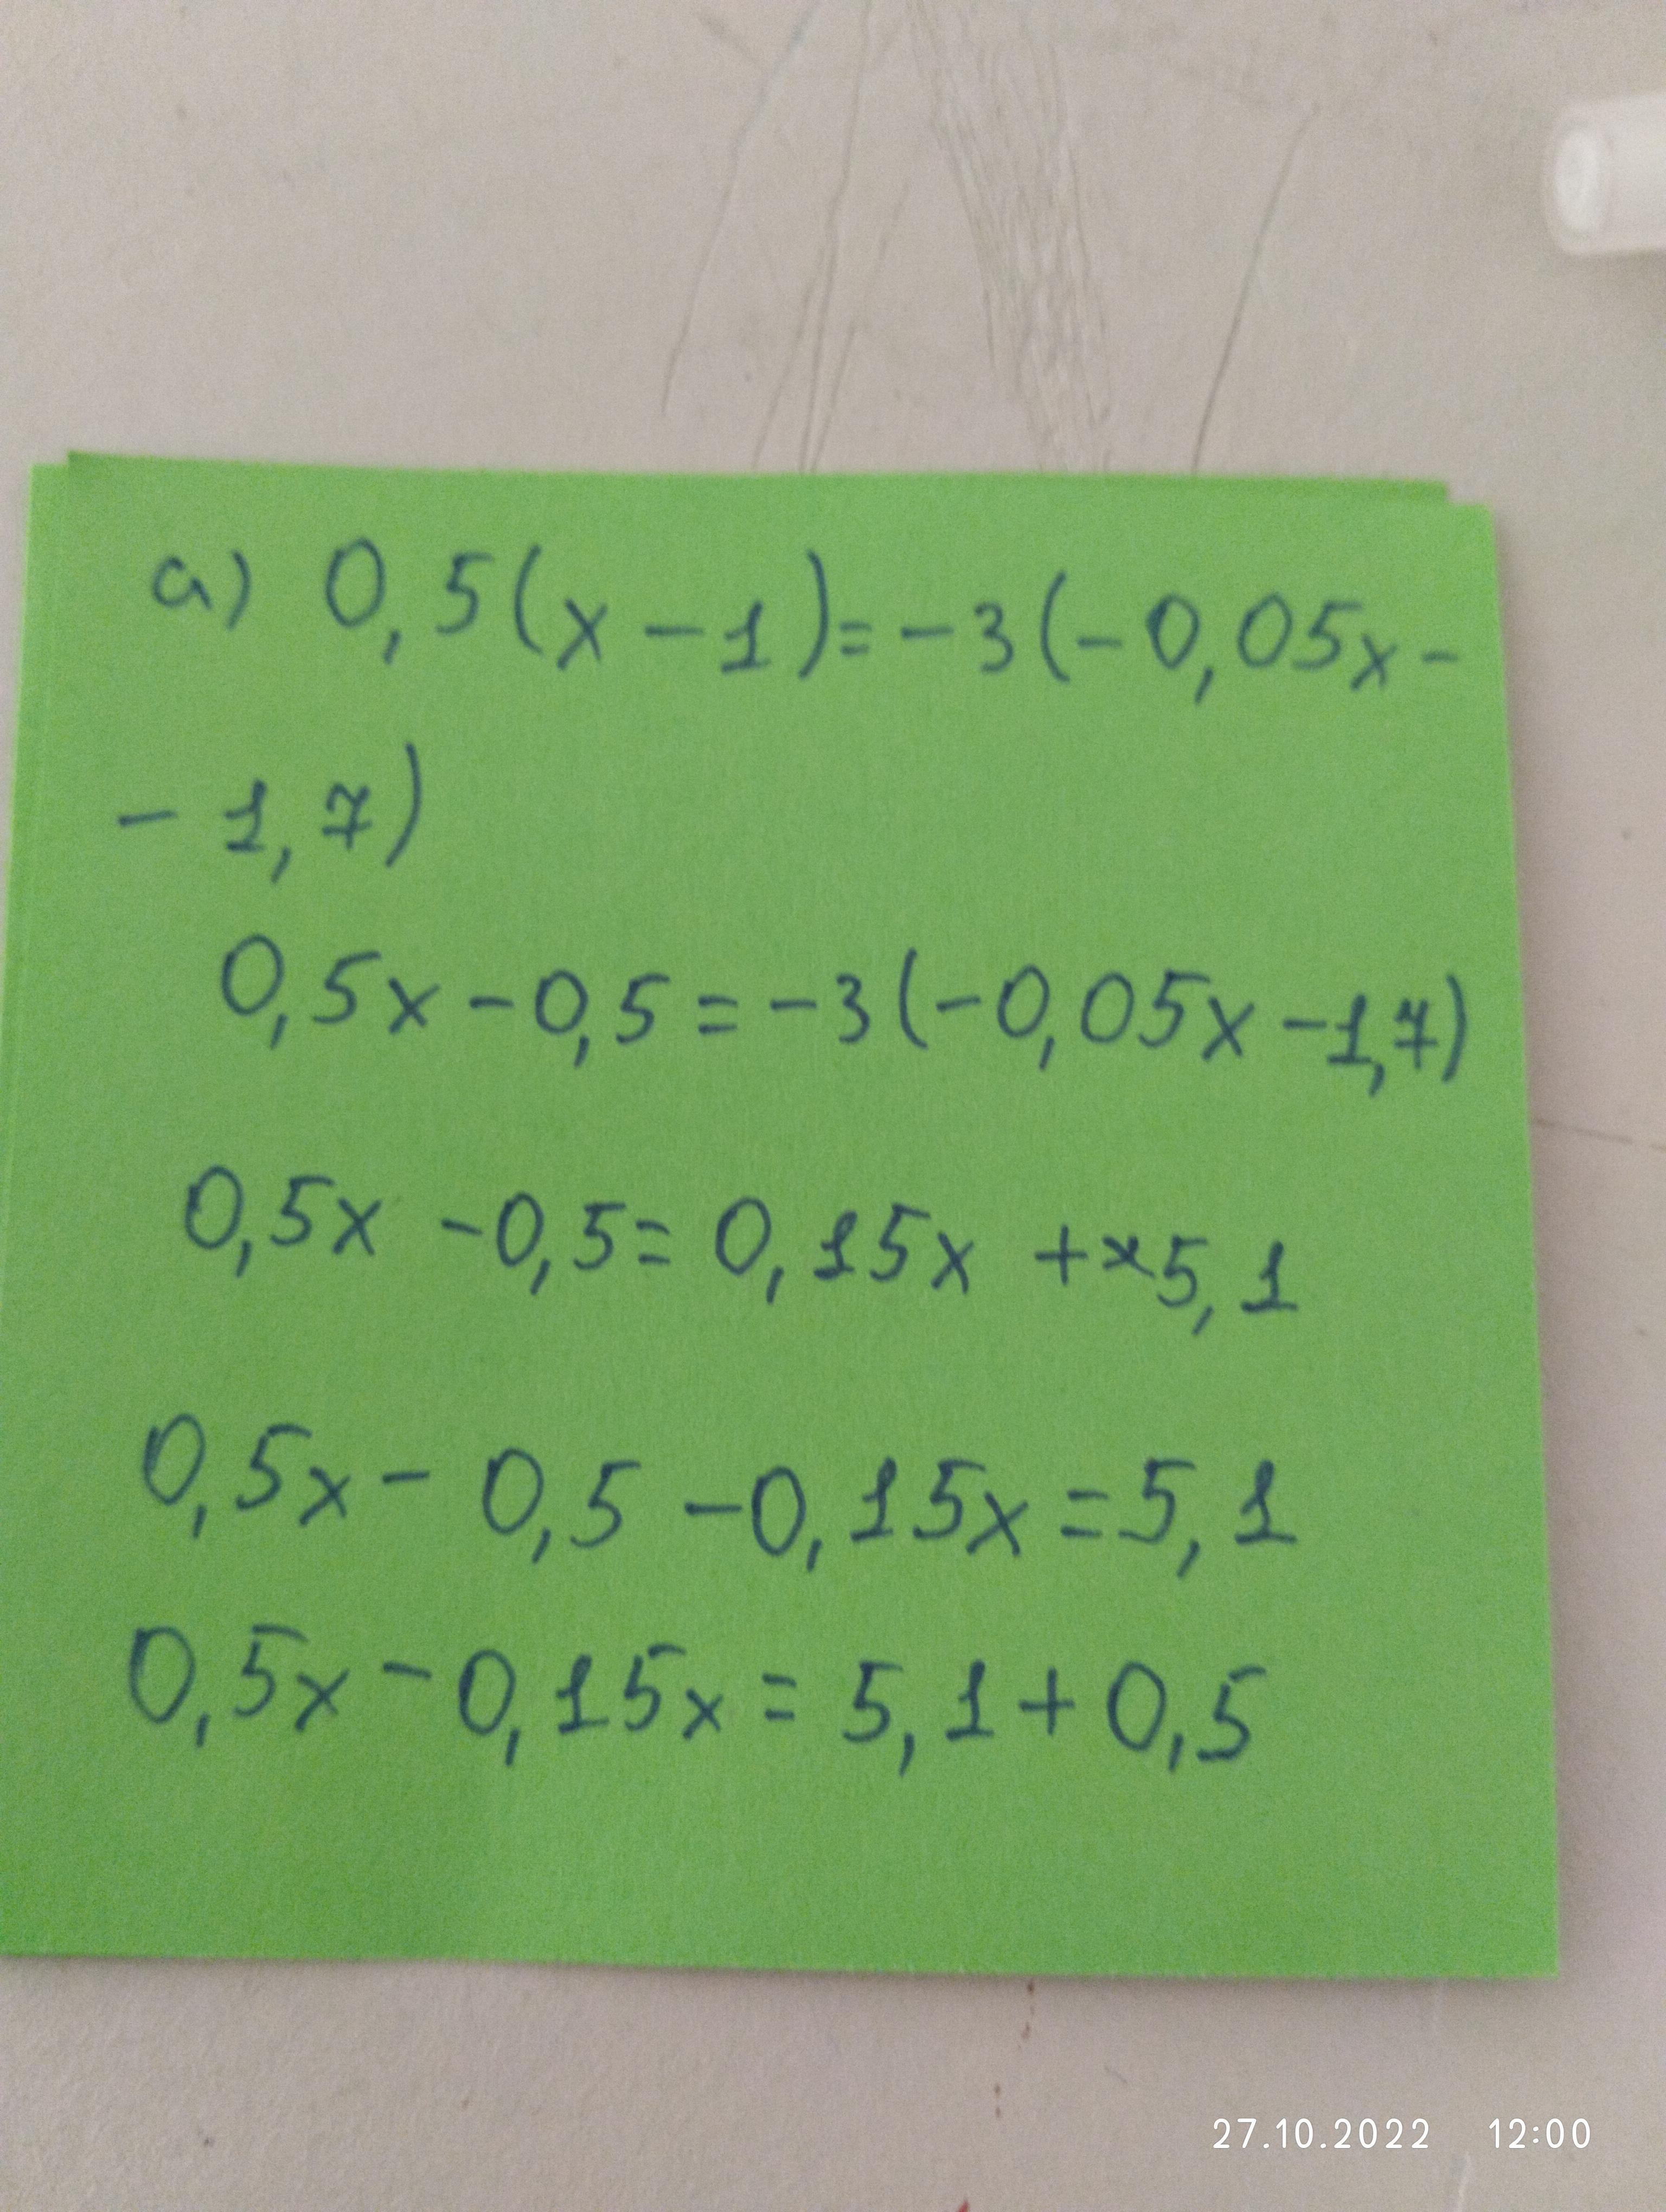 а) 0,5(x-1)=-3(-0,05x-
-1,7)
0,5x-0,5=-3(-0,05x-1,7)
0,5x-0,5=0,15x+5,1
0,5x-0,5-0,15x=5,1
0,5x-0,15x=5,1+0,5
27.10.2022 12:00